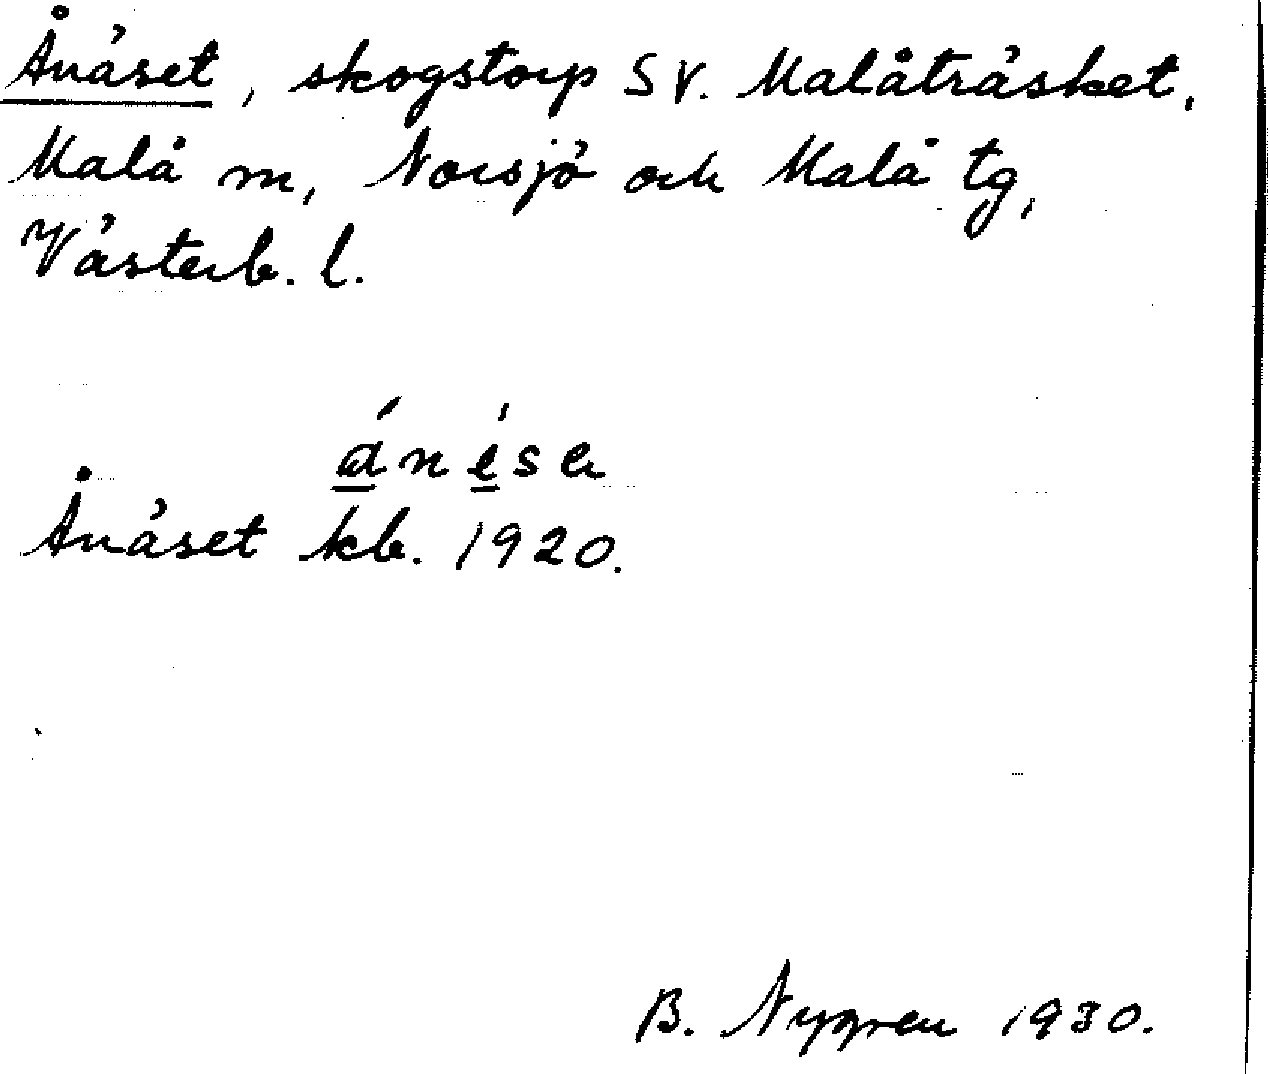 Ånäset, skogstorp SV. Malåträsket,
Malå m, Norsjö och Malå tg,
Västerb. l.
ánésa
Ånäset kb. 1920.
B. Nygren 1930.